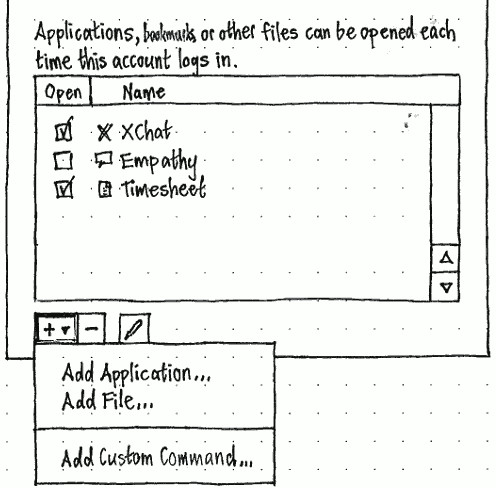 Applications, bookmarks, or other files can be opened each
time this account logs in.
Open Name
XChat
Empathy
Timesheet
+ -
Add Application...
Add File...
Add Custom Command...